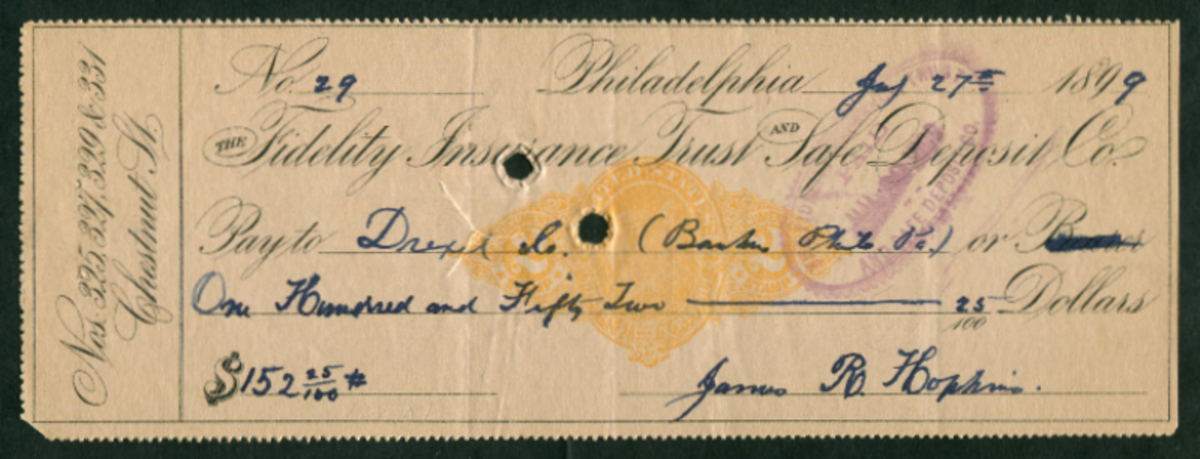 Nos. 325, 327, 329 & 331
Chestnut St.
No. 29 Philadelphia 27th 1899
THE Fidelity Insurance Trust AND Safe Deposit Co.
Pay to Drexel & Co. (Bankers Phila. Pa.) or
One Hundred and Fifty Two 25/100 Dollars
$152 25/100 James R. Hopkins.
UNITED STATES
SAFE DEPOSIT CO.